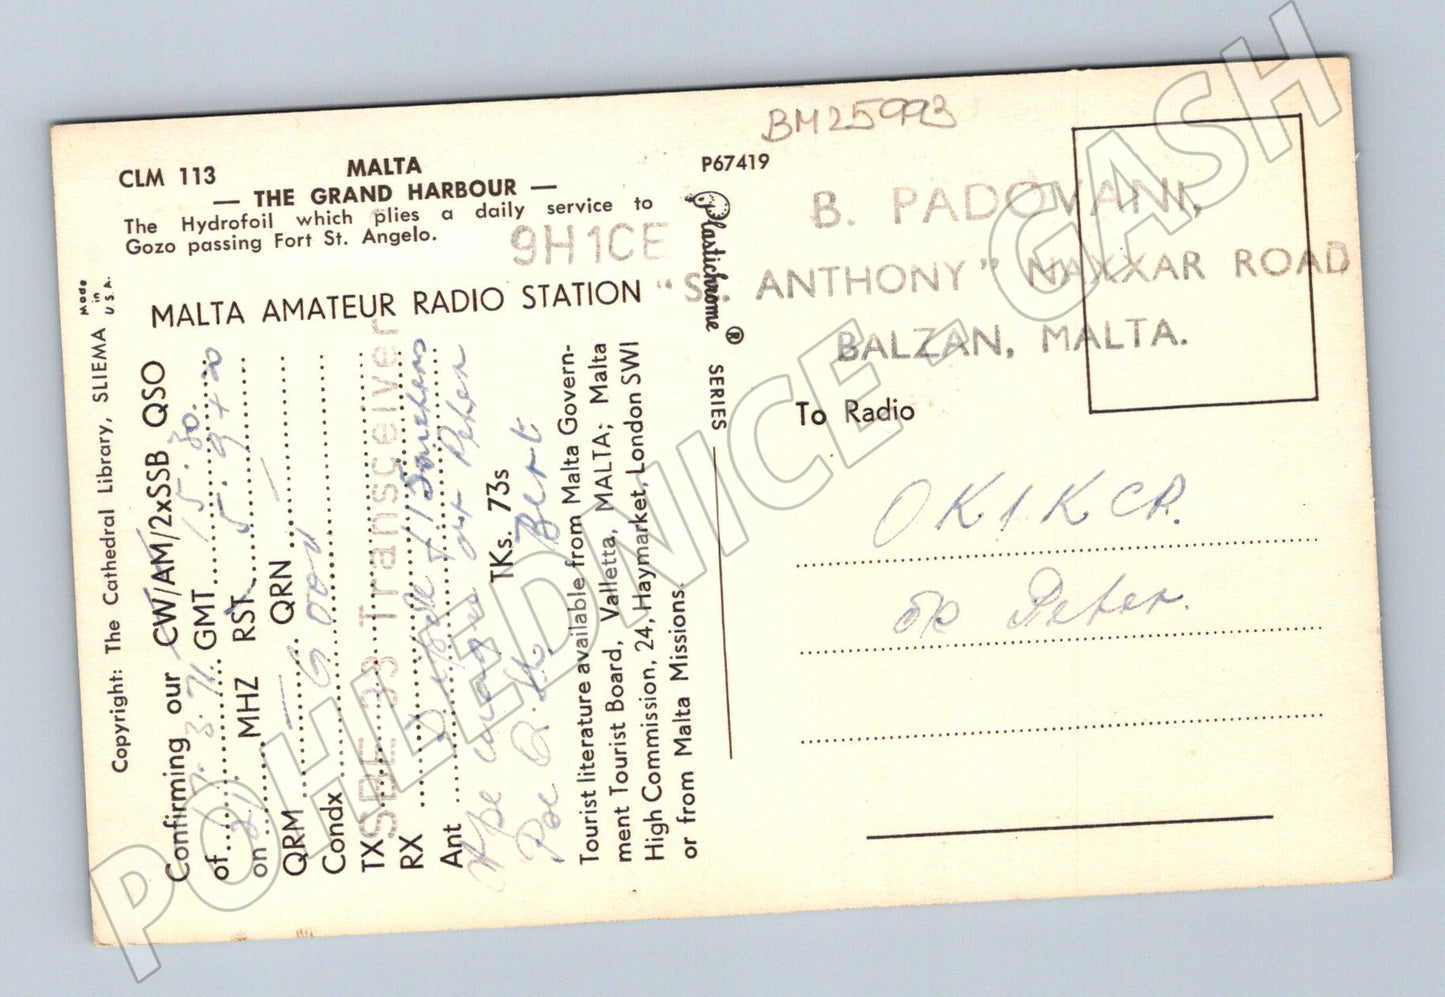 BM25993
CLM 113
MALTA
— THE GRAND HARBOUR —
The Hydrofoil which plies a daily service to
Gozo passing Fort St. Angelo.
P67419
9H1CE
MALTA AMATEUR RADIO STATION
B. PADOVANI,
"ST. ANTHONY" NAXXAR ROAD
BALZAN, MALTA.
To Radio
OK1KCP.
op Peter.
Copyright: The Cathedral Library, SLIEMA
Made
in
U.S.A.
Confirming our CW/AM/2xSSB QSO
of 3.71 GMT 15.30.
on 21 MHZ RST 5.9+20
QRM — QRN —
Condx Good
TX SBE 33 Transceiver
RX
Ant
op Peter
TKs. 73s
Bert
Tourist literature available from Malta Govern-
ment Tourist Board, Valletta, MALTA; Malta
High Commission, 24, Haymarket, London SW1
or from Malta Missions.
Plastichrome ® SERIES
POHLEDNICE - GASH